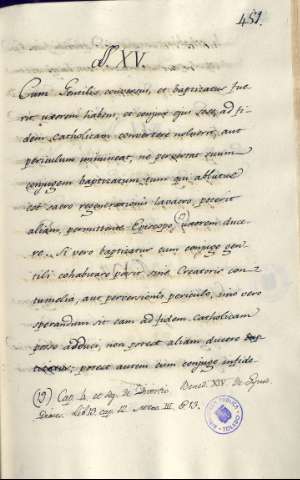 451.
§. XV.
Cum Gentilis conversus, et baptizatus fue-
rit uxorem habens, et conjux ejus ad fi-
dem catholicam convertere noluerit, aut
periculum immineat, ne pervertat suum
conjugem baptizatum, tum qui ablutus
est sacro regenerationis lavacro, poterit
aliam, permittente Episcopo, (19) uxorem duce-
re. Si vero baptizatus cum conjuge gen-
tili cohabitare possit sine Creatoris con-
tumelia, aut perversionis periculo, imo vero
sperandum sit eam ad fidem catholicam
posse adduci, non potest aliam ducere
potest autem cum conjuge infide
(19) Cap. 4. et seq. de Divortio. Bened. XIV. de Synod.
Dioeces. Lib. 13. cap. 12. Num. III.